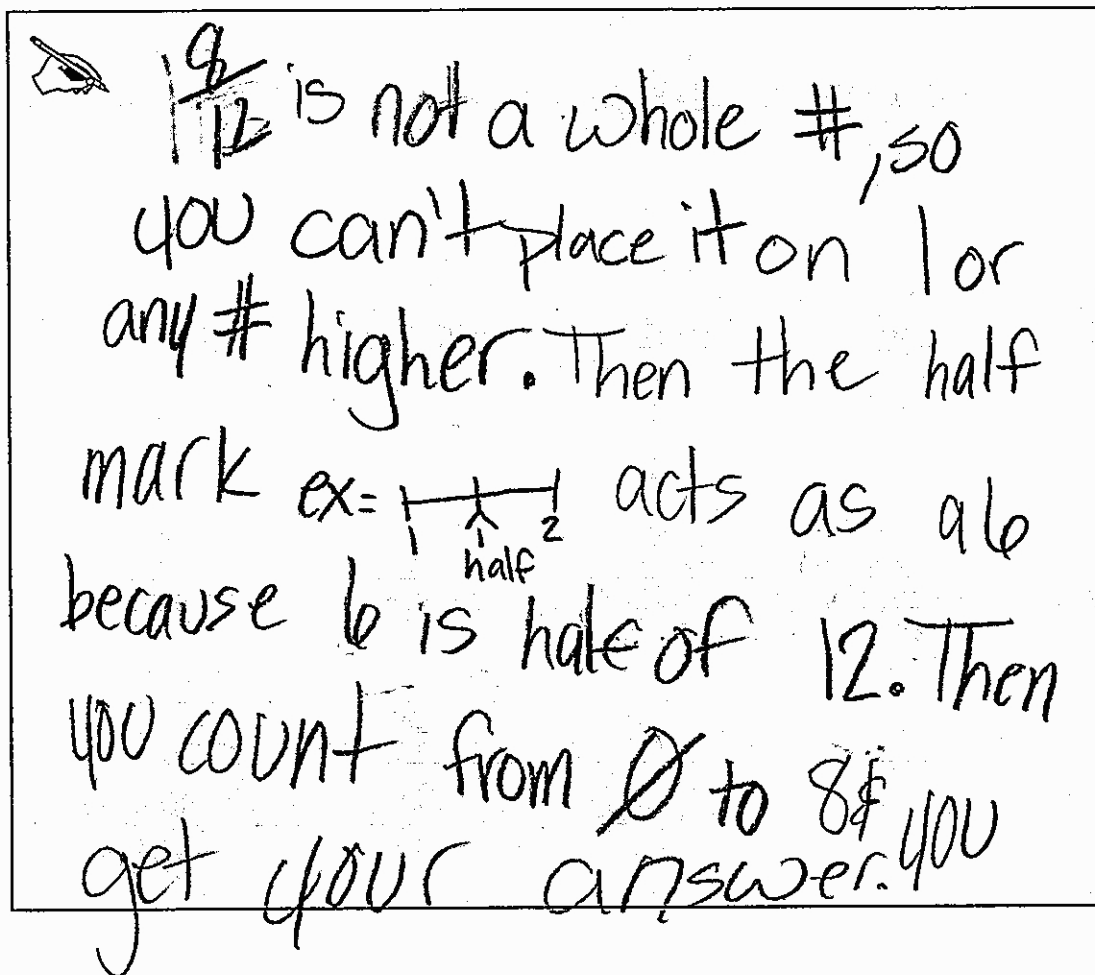 1 8/12 is not a whole #, so
you can't place it on 1 or
any # higher. Then the half
mark ex= 1 half 2 acts as a 6
because 6 is half of 12. Then
you count from 0 to 8 & you
get your answer.